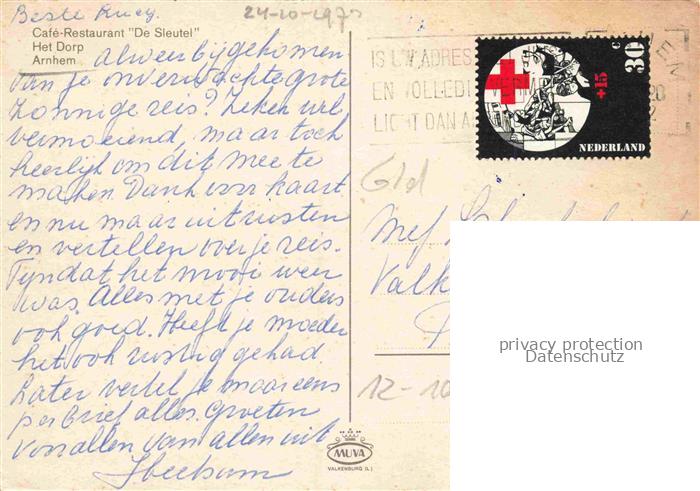 Beste Rucy. 24-10-197
Café-Restaurant "De Sleutel"
Het Dorp
Arnhem
alweer bijgekomen
van je onverwachte grote
zonnige reis? Zeker wel
vermoeiend, maar toch
heerlijk om dit mee te
maken. Dank voor kaart
en nu maar uitrusten
en vertellen over je reis.
Fijn dat het mooi weer
was. Alles met je ouders
ook goed. Heeft je moeder
het ook rustig gehad
Later vertel je maar eens
per brief alles. Groeten
voor allen van allen uit
IS UW ADRES
EN VOLLEDI
LICHT DAN A
30 c
+15
NEDERLAND
Gld
Mej
Valk
12-10
MUVA
VALKENBURG (L.)
privacy protection
Datenschutz